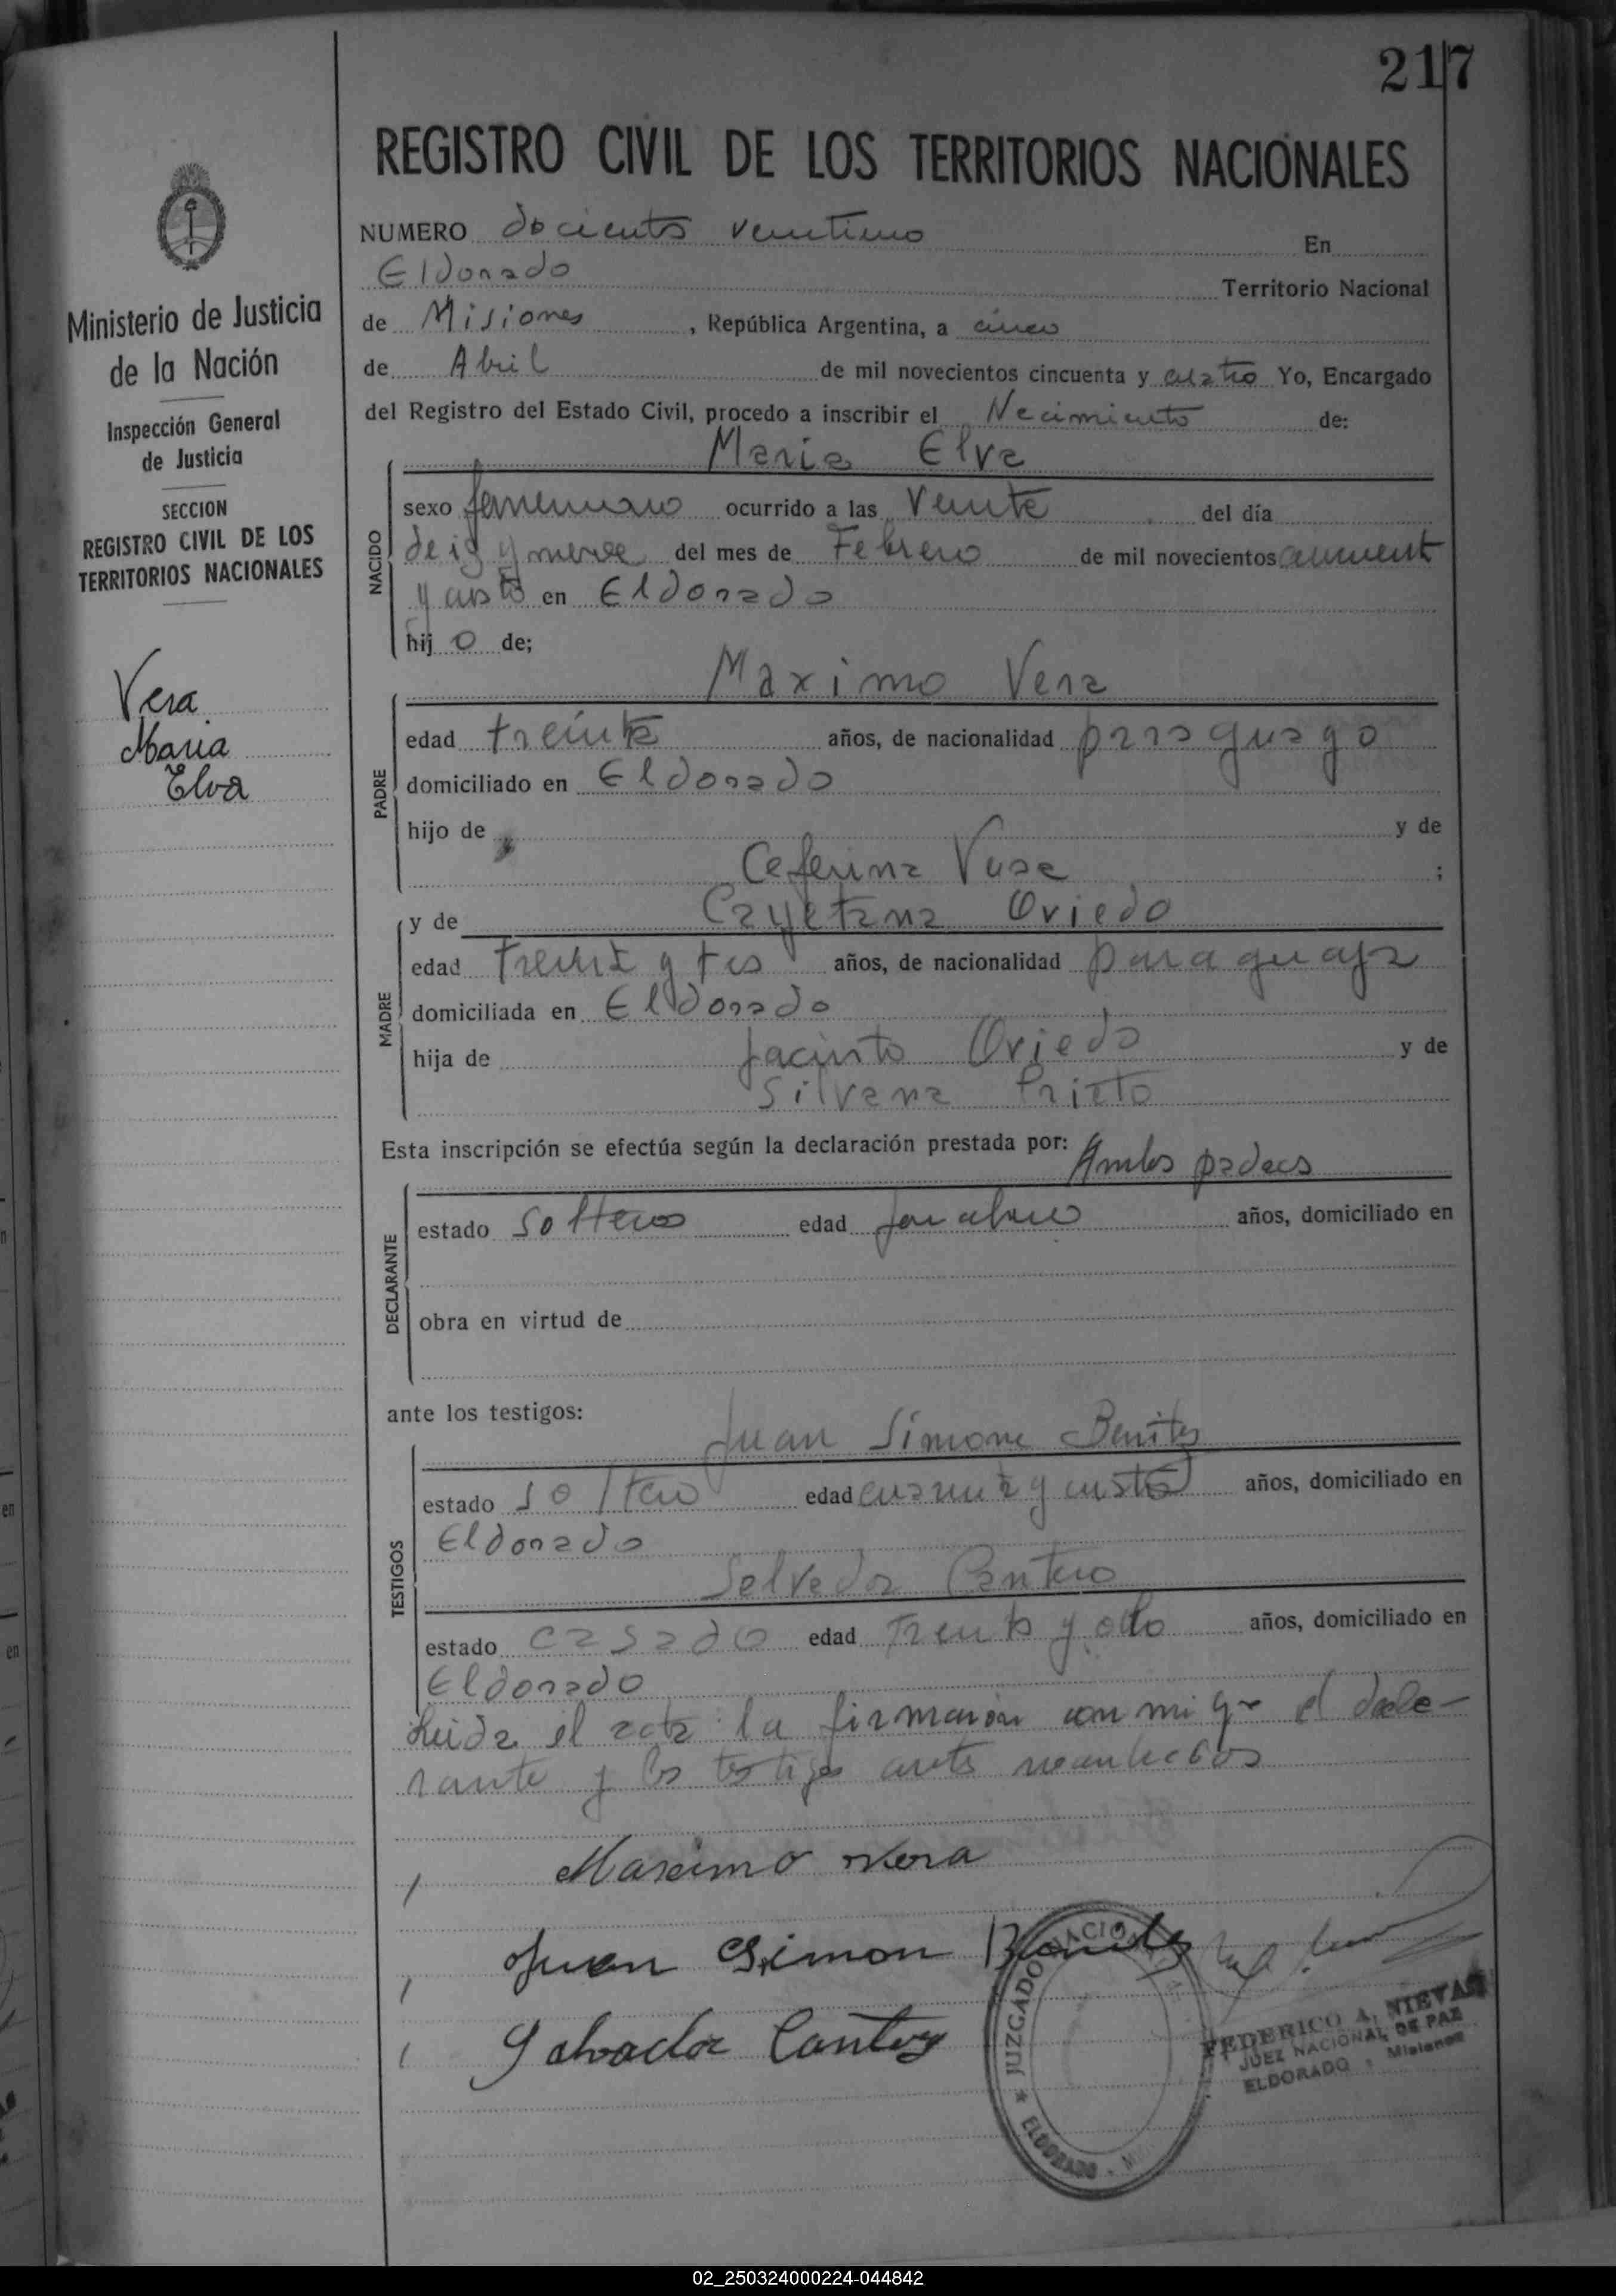 217
REGISTRO CIVIL DE LOS TERRITORIOS NACIONALES
NUMERO docientos ventiuno En
Eldorado Territorio Nacional
de Misiones, República Argentina, a cinco
de Abril de mil novecientos cincuenta y cuatro Yo, Encargado
del Registro del Estado Civil, procedo a inscribir el Nacimiento de:
Maria Elva
NACIDO
sexo femenino ocurrido a las Veinte del día
deis y nueve del mes de Febrero de mil novecientos
y cuatro en Eldorado
hij o de;
Maximo Vera
PADRE
edad treinta años, de nacionalidad paraguayo
domiciliado en Eldorado
hijo de y de
Ceferina Vera ;
y de Cayetana Oviedo
MADRE
edad treinta y tres años, de nacionalidad paraguaya
domiciliada en Eldorado
hija de Jacinto Oviedo y de
Silvana Prieto
Esta inscripción se efectúa según la declaración prestada por: Ambos padres
DECLARANTE
estado solteros edad años, domiciliado en
obra en virtud de
ante los testigos:
Juan Simone Benites
TESTIGOS
estado soltero edad cuarenta y cuatro años, domiciliado en
Eldorado
Salvador Cantero
estado casado edad treinta y ocho años, domiciliado en
Eldorado
Leida el acta la firmaron conmigo el decla-
rante y los testigos
Maximo Vera
Juan Simon Benites
Salvador Cantero
JUZGADO NACIONAL
ELDORADO
FEDERICO A. NIEVAS
JUEZ NACIONAL DE PAZ
ELDORADO - Misiones
Ministerio de Justicia
de la Nación
Inspección General
de Justicia
SECCION
REGISTRO CIVIL DE LOS
TERRITORIOS NACIONALES
Vera
Maria
Elva
02_250324000224-044842